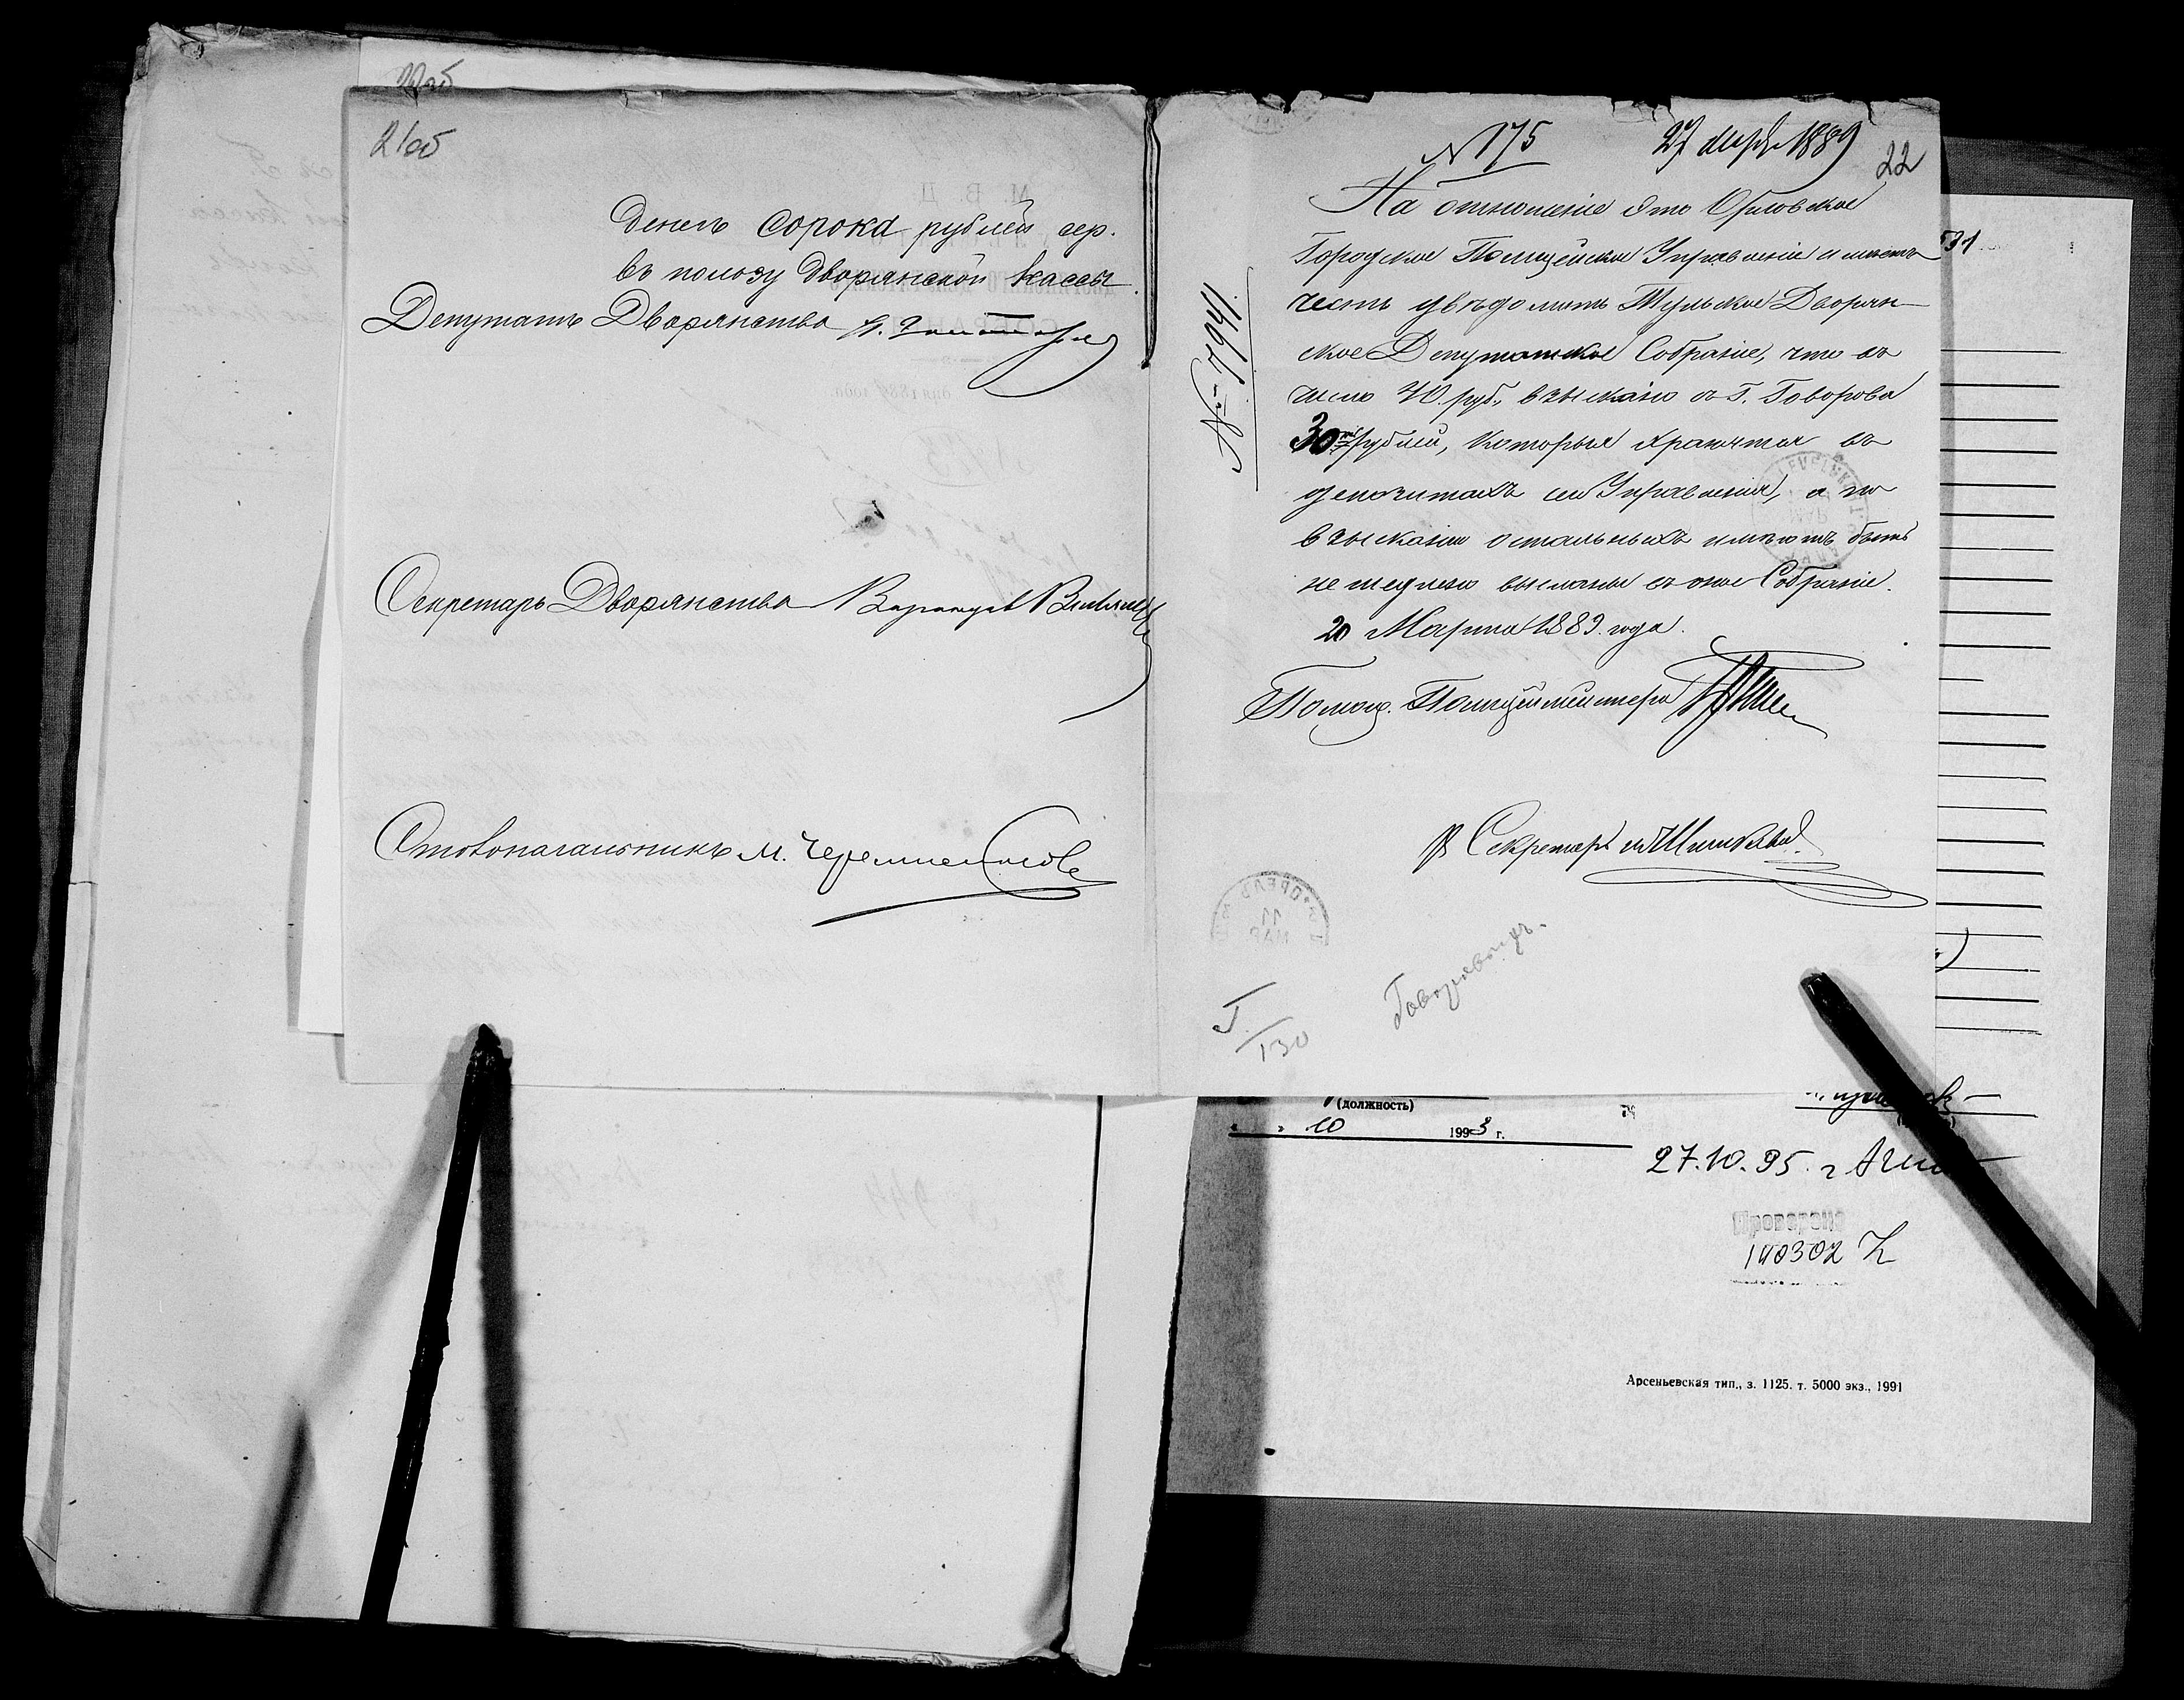 21об
денегъ сорока рублей сер.
въ пользу Дворянской Кассы.
Депутатъ Дворянства
Секретарь Дворянства
Столоначальникъ М.
№ 175
27 Марта 1889
22
№ 7941.
На отношеніе это Орловское
Городское Полицейское Управленіе имѣетъ
честь увѣдомить Тульское Дворян-
ское Депутатское Собраніе, что въ
число 40 руб., взыскано съ Г. Говорова
30 рублей, которыя хранятся въ
депозитахъ сего Управленія, а по
взысканіи остальныхъ имѣютъ быть
немедленно высланы въ оное Собраніе.
20 Марта 1889. года.
Помощ. Полицеймейстера
Секретаря
130
531
(должность)
10 1993 г.
27.10.95. г
Проверено
140302
Арсеньевская тип., з. 1125. т. 5000 экз., 1991